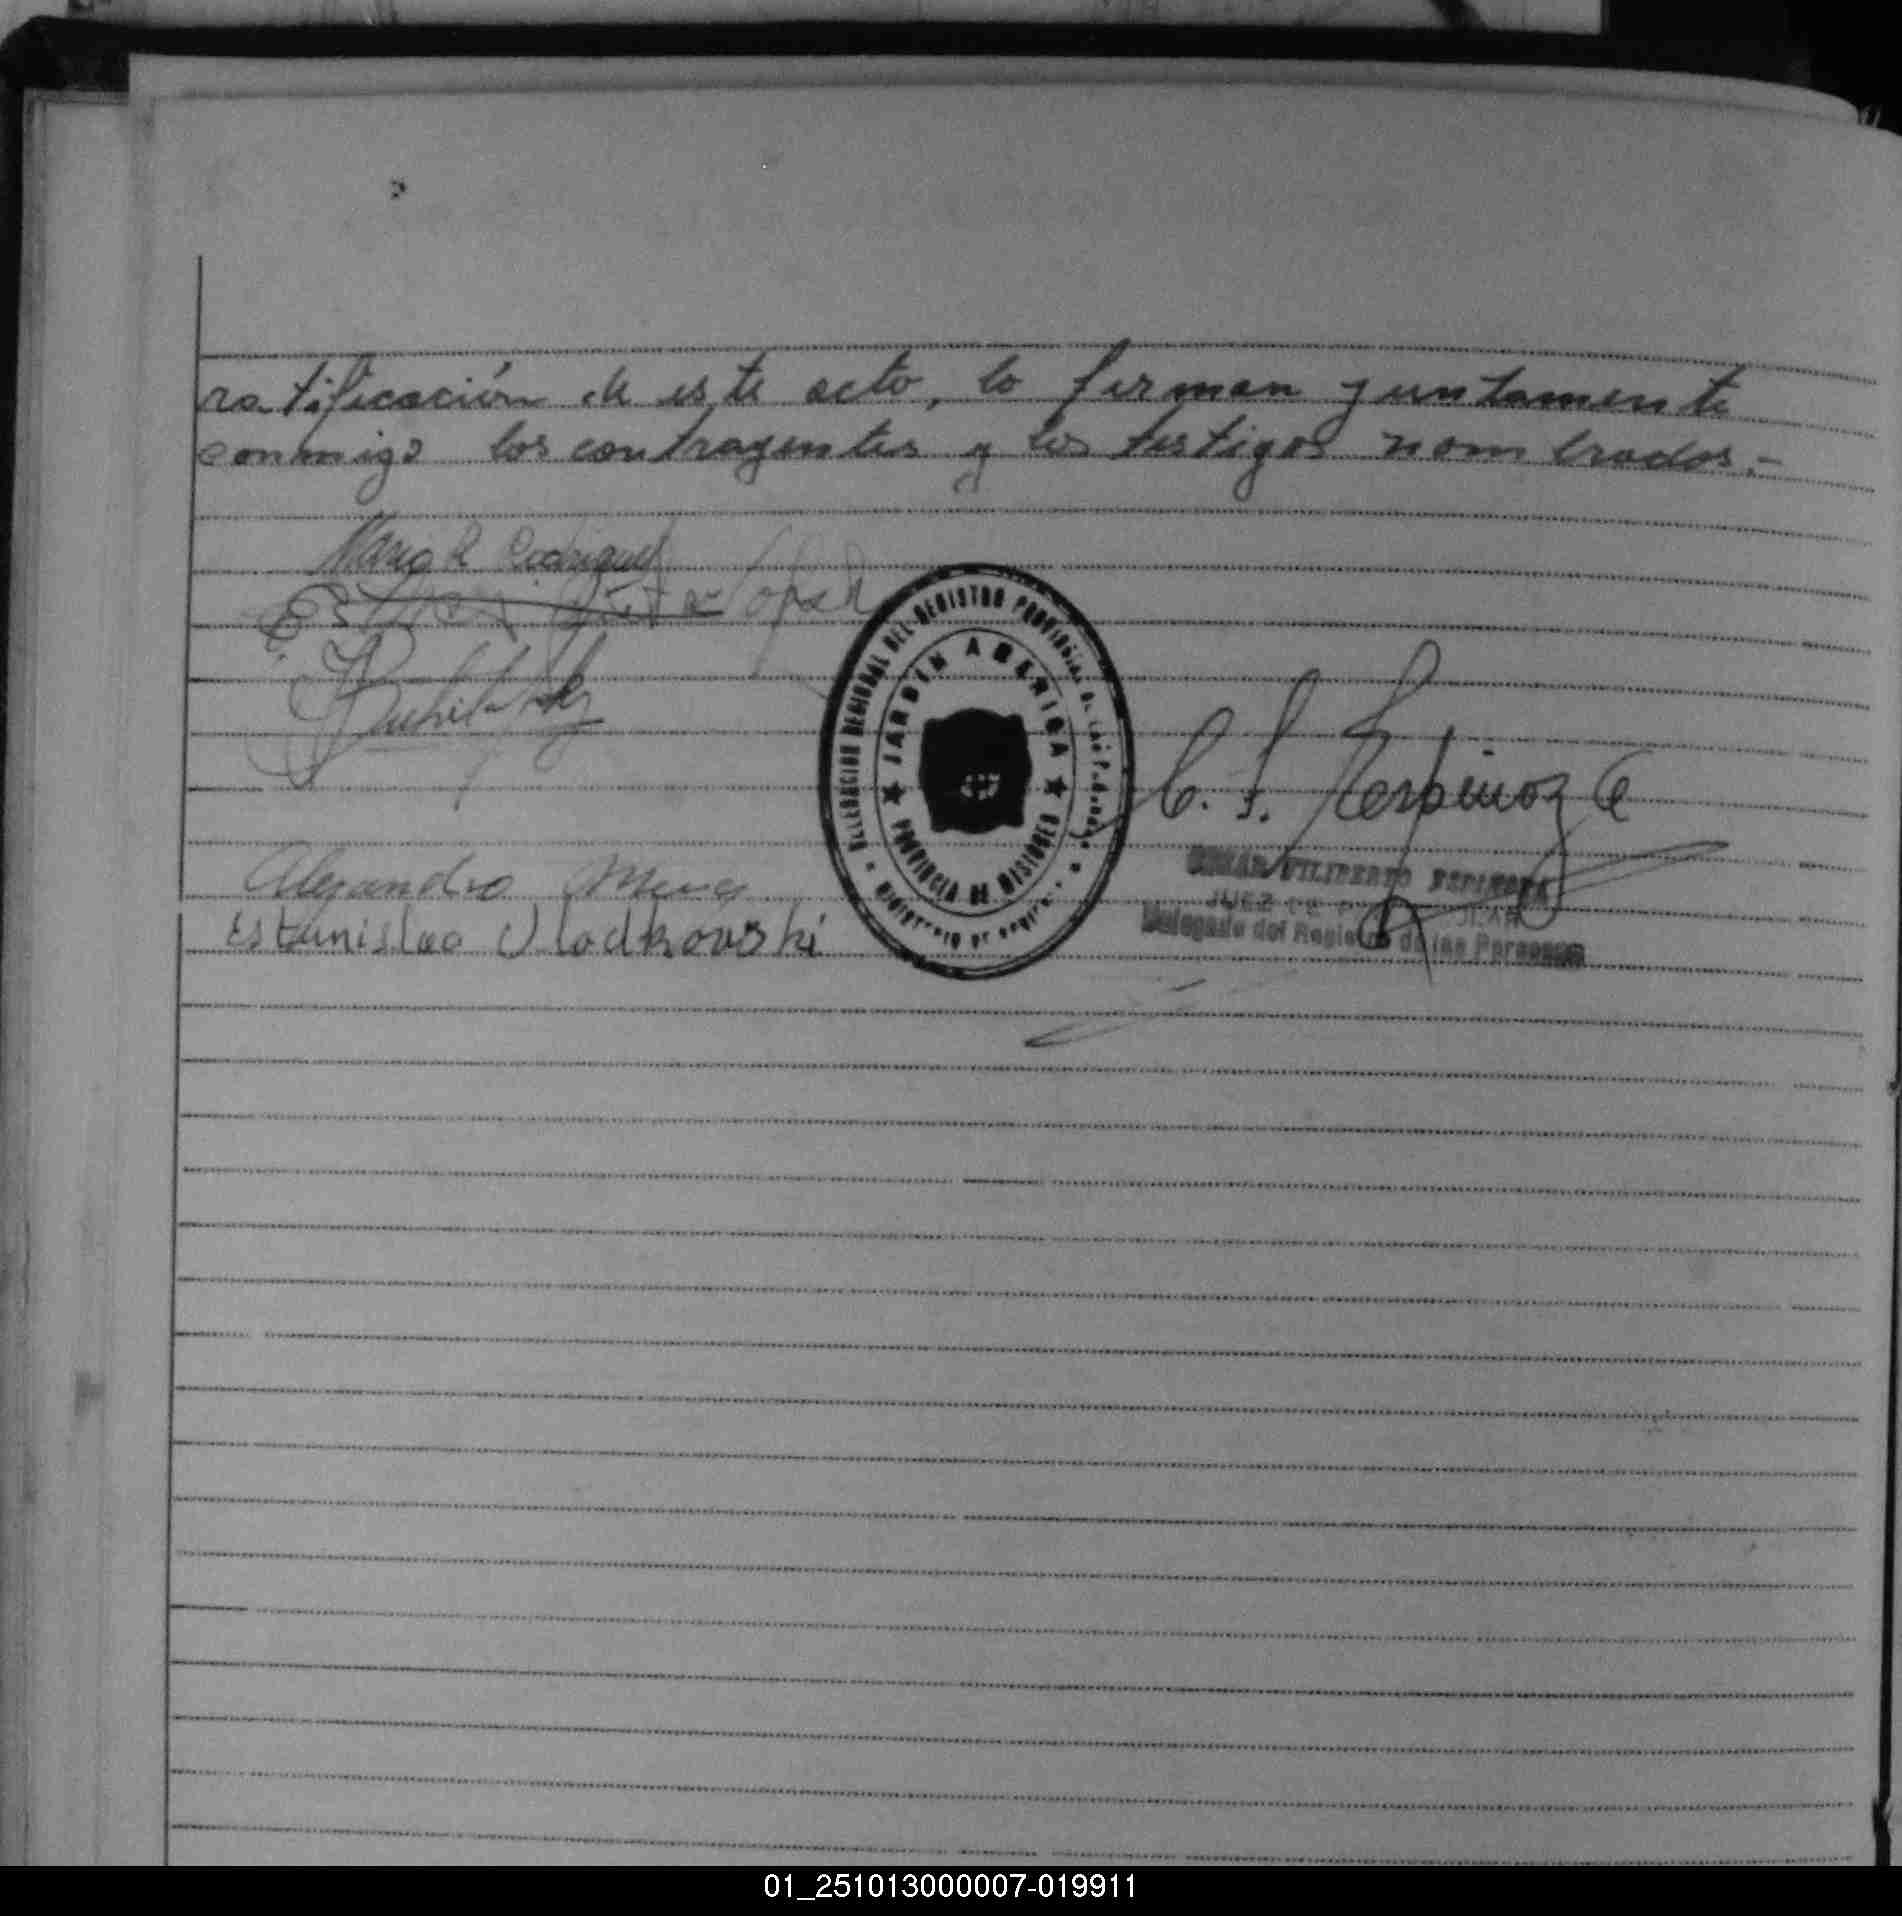 ratificación de este acto, lo firman juntamente
conmigo los contrayentes y los testigos nombrados.-
Mario R Rodriguez
DELEGACION REGIONAL DEL REGISTRO PROVINCIAL DE LAS PERSONAS
JARDIN AMERICA
PROVINCIA DE MISIONES
C. F. Espinoza
FILIBERTO ESPINOZA
JUEZ DE
Delegado del Registro de las Personas
Alejandro
Estanislao Vladkovski
01_251013000007-019911